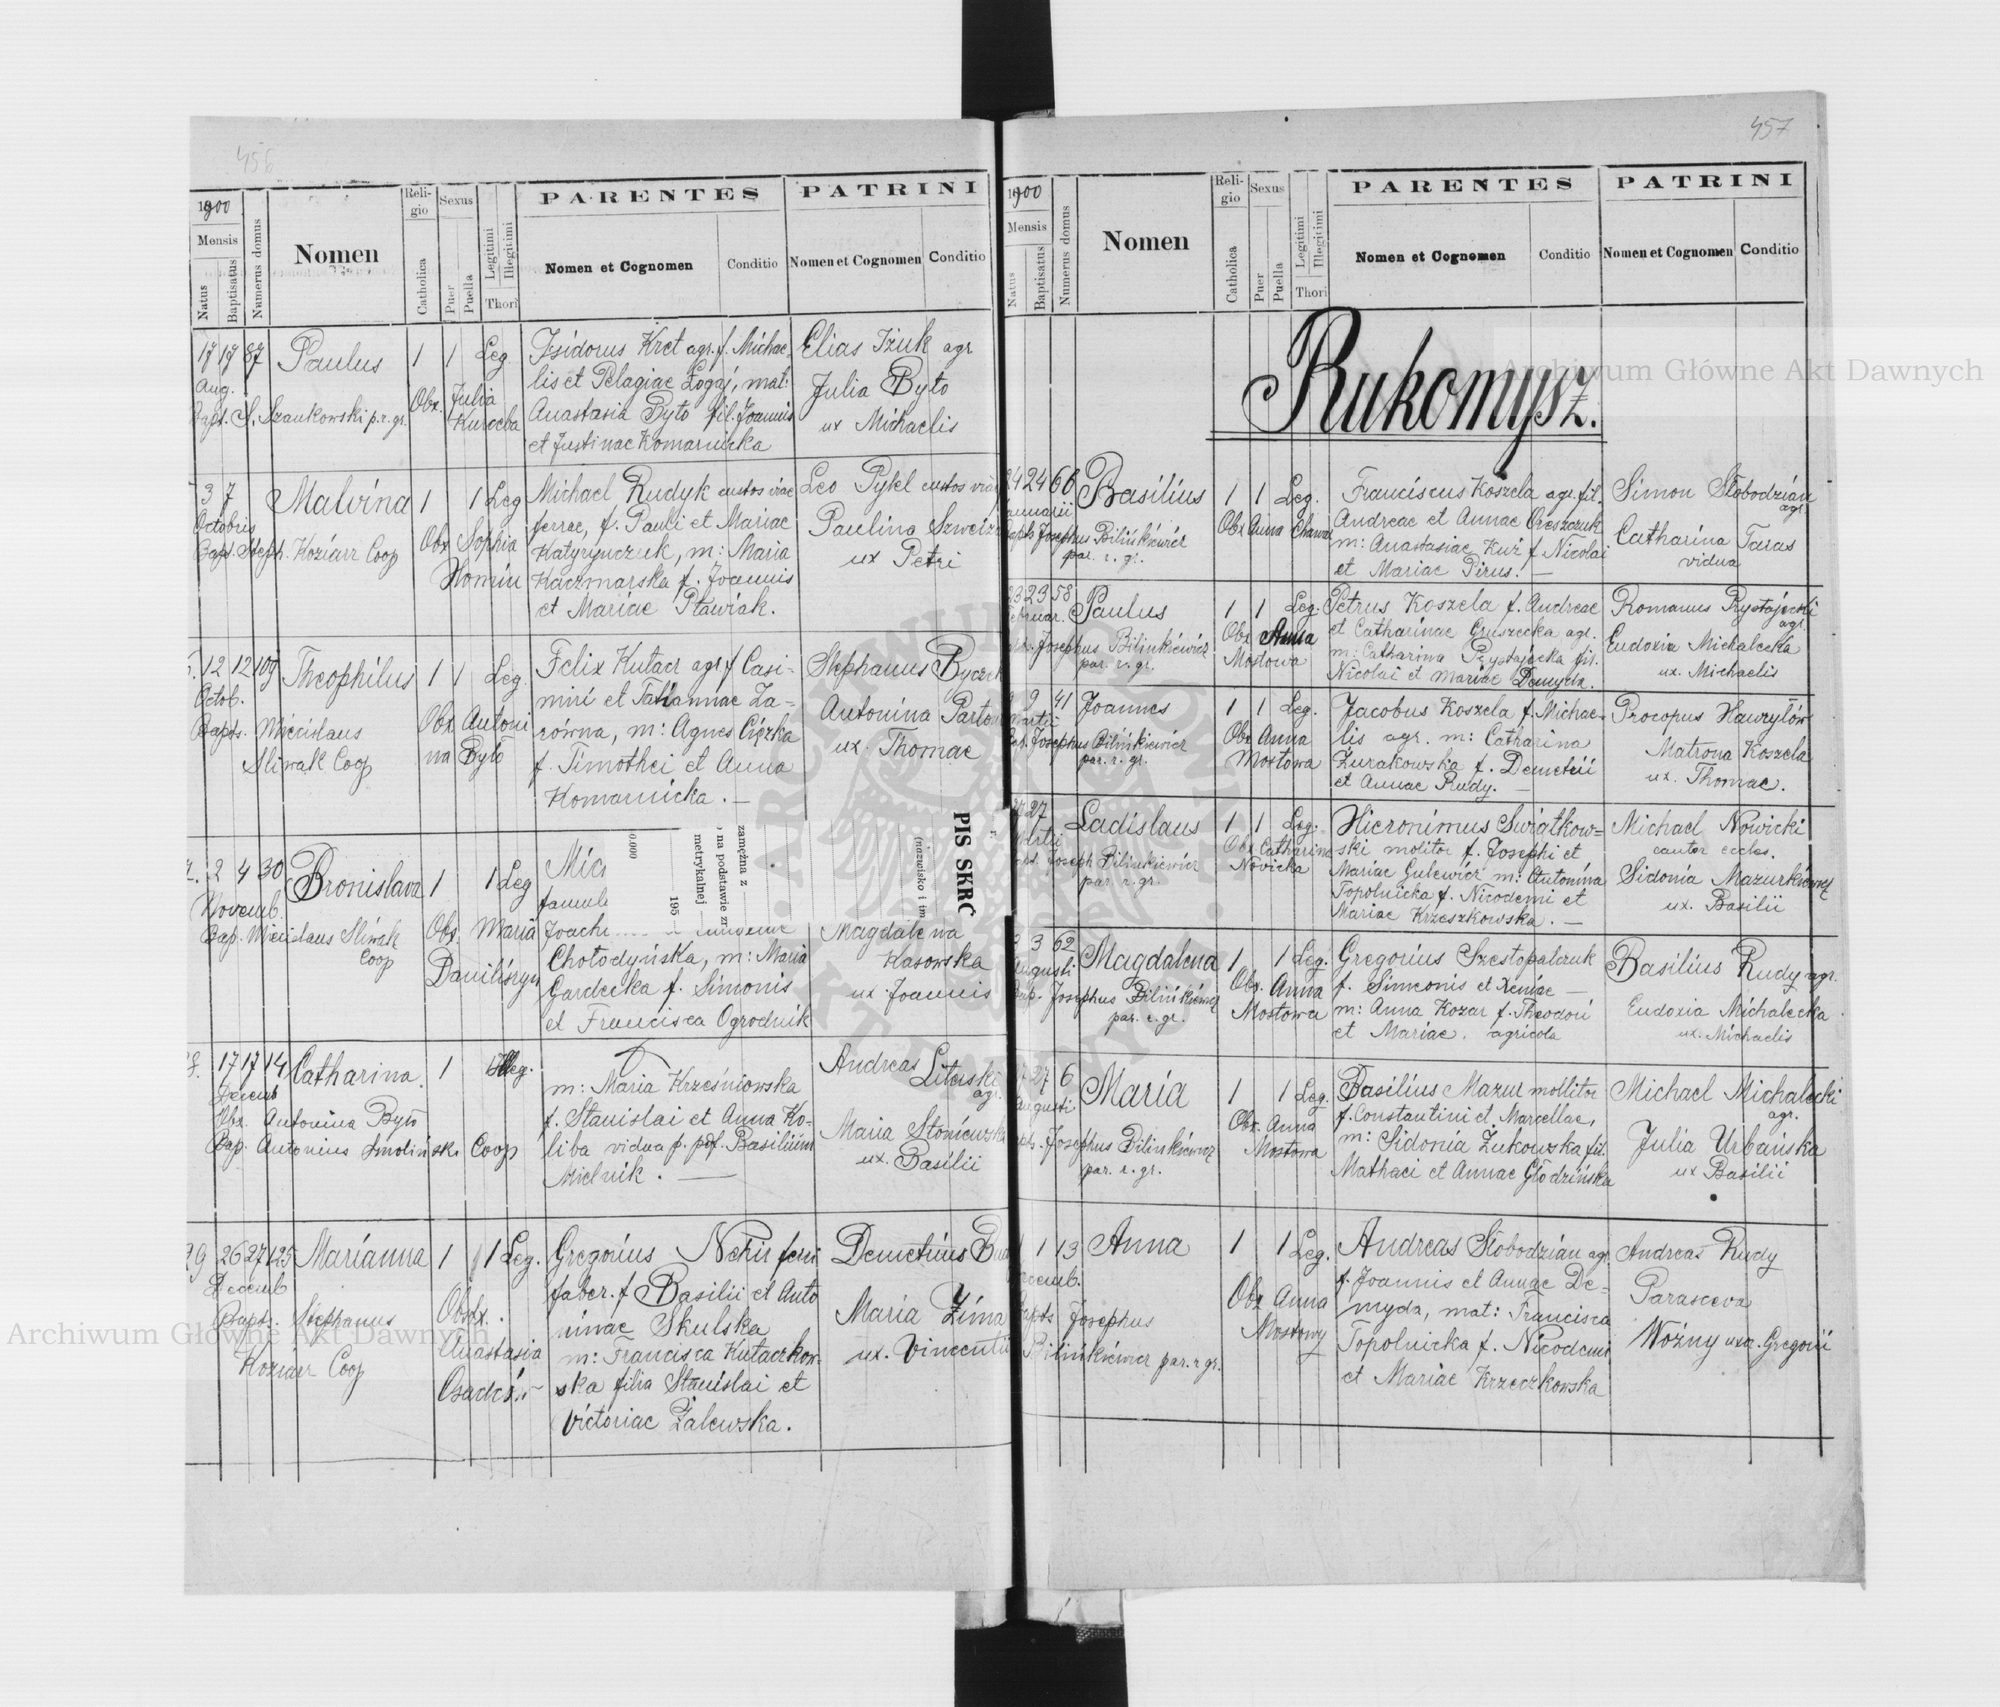 456
1900
Mensis
Natus
Baptisatus
Numerus domus
Nomen
Religio
Catholica
Sexus
Puer
Puella
Legitimi
Illegitimi
Thori
PARENTES
Nomen et Cognomen
Conditio
PATRINI
Nomen et Cognomen
Conditio
17 17 87 Paulus 1 1 Leg.
Aug.
Bapt. S. Szankowski p.r.gr.
Obx. Julia
Kurocba
Isidorus Kret agr. f. Michae-
lis et Pelagiae Łogaj, mat:
Anastasia Byto fil. Joannis
et Justinae Komarnicka
Elias Iżuk agr
Julia Byto
ux Michaelis
3 7 Malvina 1 1 Leg
Octobris
Bapt. Steph. Koziarr Coop
Obx Sophia
Homin
Michael Rudyk custos viae
ferrae, f. Pauli et Mariae
Katyrynczuk, m: Maria
Kaczmarska f. Joannis
et Mariae Pławiak.
Leo Pykel custos viae
Paulina
ux Petri
12 12 109 Theophilus 1 1 Leg.
Octob.
Bapt. Miecislaus
Sliwak Coop
Obx Antoni
na Byto
Felix Kutacz agr f Casi-
miri et Tatiannae Za-
równa, m: Agnes Ciężka
f. Timothei et Anna
Komarnicka. —
Stephanus
Antonina
ux. Thomae
2 4 30 Bronislava 1 1 Leg
Novemb.
Bap. Miecislaus Sliwak
Coop
Obx. Maria
Daniliszyn
famul
Chołodyńska, m: Maria
Gardecka f. Simonis
et Francisca Ogrodnik
PIS SKRÓ
(nazwisko i im
zamężna z
na podstawie
metrykalnej
195
0.000
Magdalena
Kasowska
ux. Joannis
17 17 14 Catharina. 1 Illeg.
Decemb
Obx. Antonina Byto
Bap. Antonius Smoliński Coop
m: Maria Krześniowska
f. Stanislai et Anna Ko-
liba vidua p. pdf. Basilium
Mielnik. —
Andreas Literski
agr.
Maria
ux. Basilii
29 26 27 125 Marianna 1 1 Leg.
Decemb
Bapt. Stephanus
Koziarr Coop
Obstx.
Anastasia
Gregorius Nekir ferri
faber. f Basilii et Anto
ninae Skulska
m: Francisca Kutaczkow-
ska filia Stanislai et
Victoriae Zalewska.
Demetrius
Maria Zima
ux. Vincentii
457
1900
Mensis
Natus
Baptisatus
Numerus domus
Nomen
Religio
Catholica
Sexus
Puer
Puella
Legitimi
Illegitimi
Thori
PARENTES
Nomen et Cognomen
Conditio
PATRINI
Nomen et Cognomen
Conditio
Rukomysz.
24 24 66 Basilius 1 1 Leg.
Januarii
Bapts Josephus Bilińkiewicz
par. r. gr.
Obx Anna
Franciscus Koszela agr. fil.
Andreae et Annae Oreszczuk
m: Anastasiae Kuź f. Nicolai
et Mariae Pirus. —
Simon Słobodzian
agr.
Catharina Taras
vidua
23 23 58 Paulus 1 1 Leg.
Februar.
Josephus Bilinkiewicz
par. r. gr.
Obx Anna
Mostowa
Petrus Koszela f. Andreae
et Catharinae Gruszecka agr.
m: Catharina Przystajecka fil.
Nicolai et Mariae Demyda.
Romanus Przystajecki
agr.
Eudoxia Michalecka
ux. Michaelis
9 9 41 Joannes 1 1 Leg.
Martii
Bap. Josephus Bilińkiewicz
par. r. gr.
Obx Anna
Mostowa
Jacobus Koszela f. Michae-
lis agr. m: Catharina
Żurakowska f. Demetrii
et Annae Rudy. —
Procopus Hawrylów
Matrona Koszela
ux. Thomae.
27 27 Ladislaus 1 1 Leg.
Martii
Joseph Bilinkiewicz
par. r. gr.
Obx Catharina
Nowicka
Hieronimus Swiatkow=
ski molitor f. Josephi et
Mariae Gulewicz m: Antonina
Topolnicka f. Nicodemi et
Mariae Krzeszkowska. —
Michael Nowicki
cantor eccles.
Sidonia Mazurkiewicz
ux. Basilii
3 3 62 Magdalena 1 1 Leg.
Augusti
Bap. Josephus Bilińkiewicz
par. r. gr.
Obx. Anna
Mostowa
Gregorius Szestopalczuk
f. Simeonis et Xeniae —
m: Anna Kozar f. Theodori
et Mariae. agricola
Basilius Rudy agr.
Eudoxia Michalecka
ux. Michaelis
27 27 6 Maria 1 1 Leg.
Augusti
Josephus Bilinkiewicz
par. r. gr.
Obx. Anna
Mostowa
Basilius Mazur mollitor
f. Constantini et Marcellae,
m: Sidonia Żukowska fil.
Mathaei et Annae Głodzińska
Michael Michalecki
agr.
Julia Urbańska
ux Basilii
1 1 13 Anna 1 1 Leg.
Bapts Josephus
Bilińkiewicz par. r gr.
Obx Anna
Mostowy
Andreas Słobodzian agr
f. Joannis et Annae De-
myda, mat: Francisca
Topolnicka f. Nicodemi
et Mariae Krzeczkowska
Andreas Rudy
Parasceva
Woźny uxa. Gregorii
Archiwum Główne Akt Dawnych
Archiwum Główne Akt Dawnych